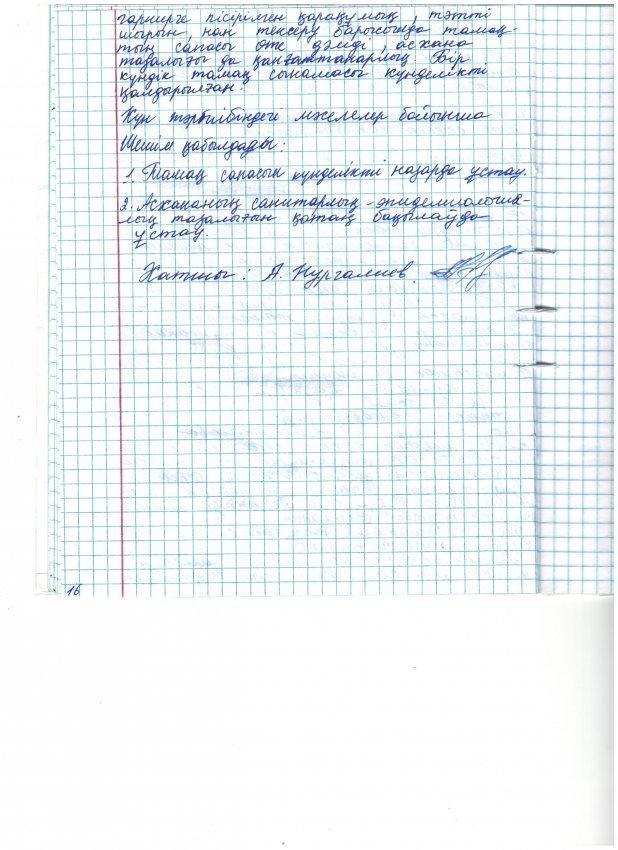 гарнирге пісірілген қарақұмық, тәтті
шырын, нан тексеру барысында тамақ-
тың сапасы өте дәмді, асхана
тазалығы да қанғаттанарлық Бір
күндік тамақ сынамасы күнделікті
қалдырылған.
Күн тәртібіндегі мәселелер бойынша
Шешім қабылдады:
1. Тамақ сапасын күнделікті назарда ұстау.
2. Асхананың санитарлық-эпидемиология-
лық тазалығын қатаң бақылауда
ұстау.
Хатшы: А. Нургалиев.
16